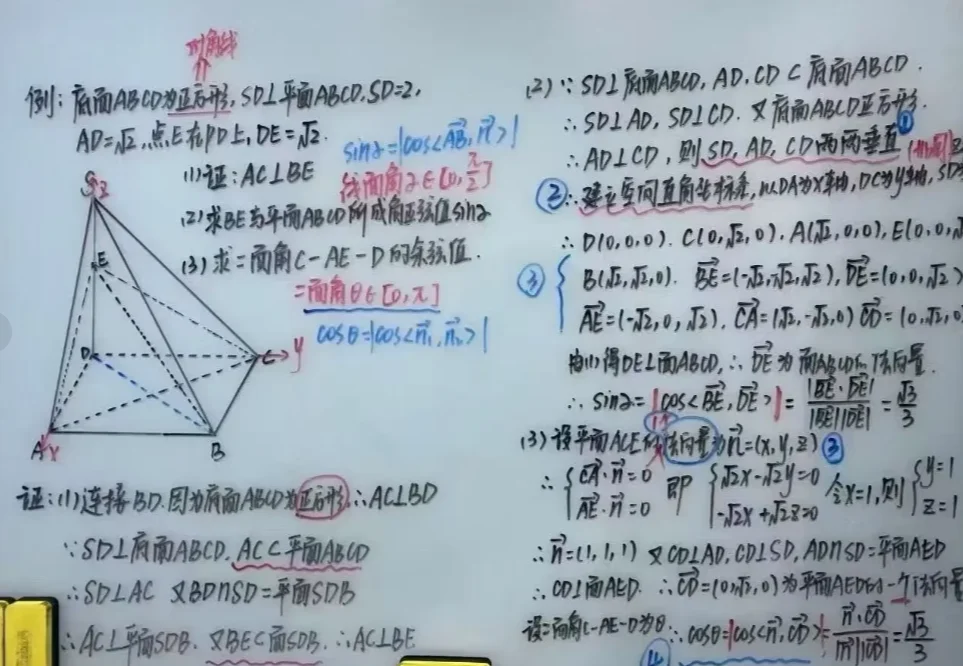 对角线
例：底面ABCD为正方形，SD⊥平面ABCD，SD=2，
AD=√2，点E在PD上，DE=√2．
sinα=|cos<AB，n>|
(1)证：AC⊥BE
线面角α∈[0,π/2]
(2)求BE与平面ABCD所成角正弦值sinα
(3)求二面角C-AE-D的余弦值．
二面角θ∈[0,π]
cosθ=|cos<n₁，n₂>|
S z
E
D
C y
A x
B
证：(1)连接BD．因为底面ABCD为正方形∴AC⊥BD
∵SD⊥底面ABCD．AC⊂平面ABCD
∴SD⊥AC 又BD∩SD=平面SDB
∴AC⊥平面SDB．又BE⊂面SDB．∴AC⊥BE
(2)∵SD⊥底面ABCD，AD，CD⊂底面ABCD．
∴SD⊥AD，SD⊥CD．又底面ABCD正方形．
∴AD⊥CD，则SD，AD，CD两两垂直①
②∴建立空间直角坐标系，以DA为x轴，DC为y轴，SD
∴D(0,0,0)．C(0,√2,0)．A(√2,0,0)，E(0,0,√
③ B(√2,√2,0)．BE=(-√2,-√2,√2)，DE=(0,0,√2)
AE=(-√2,0,√2)．CA=(√2,-√2,0) CD=(0,√2,0
由(1)得DE⊥面ABCD，∴DE为面ABCD的法向量．
∴sinα=|cos<BE，DE>|=|BE·DE|/|BE||DE|=√3/3
(3)设平面ACE的法向量为n=(x,y,z)③
∴{CA·n=0 即 {√2x-√2y=0 令x=1，则{y=1
AE·n=0 -√2x+√2z=0 z=1
∴n=(1,1,1) 又CD⊥AD，CD⊥SD，AD∩SD=平面AED
∴CD⊥面AED．∴CD=(0,√2,0)为平面AED的一个法向量
设二面角C-AE-D为θ∴cosθ=|cos<n，CD>|=n·CD/|n||CD|=√3/3
④